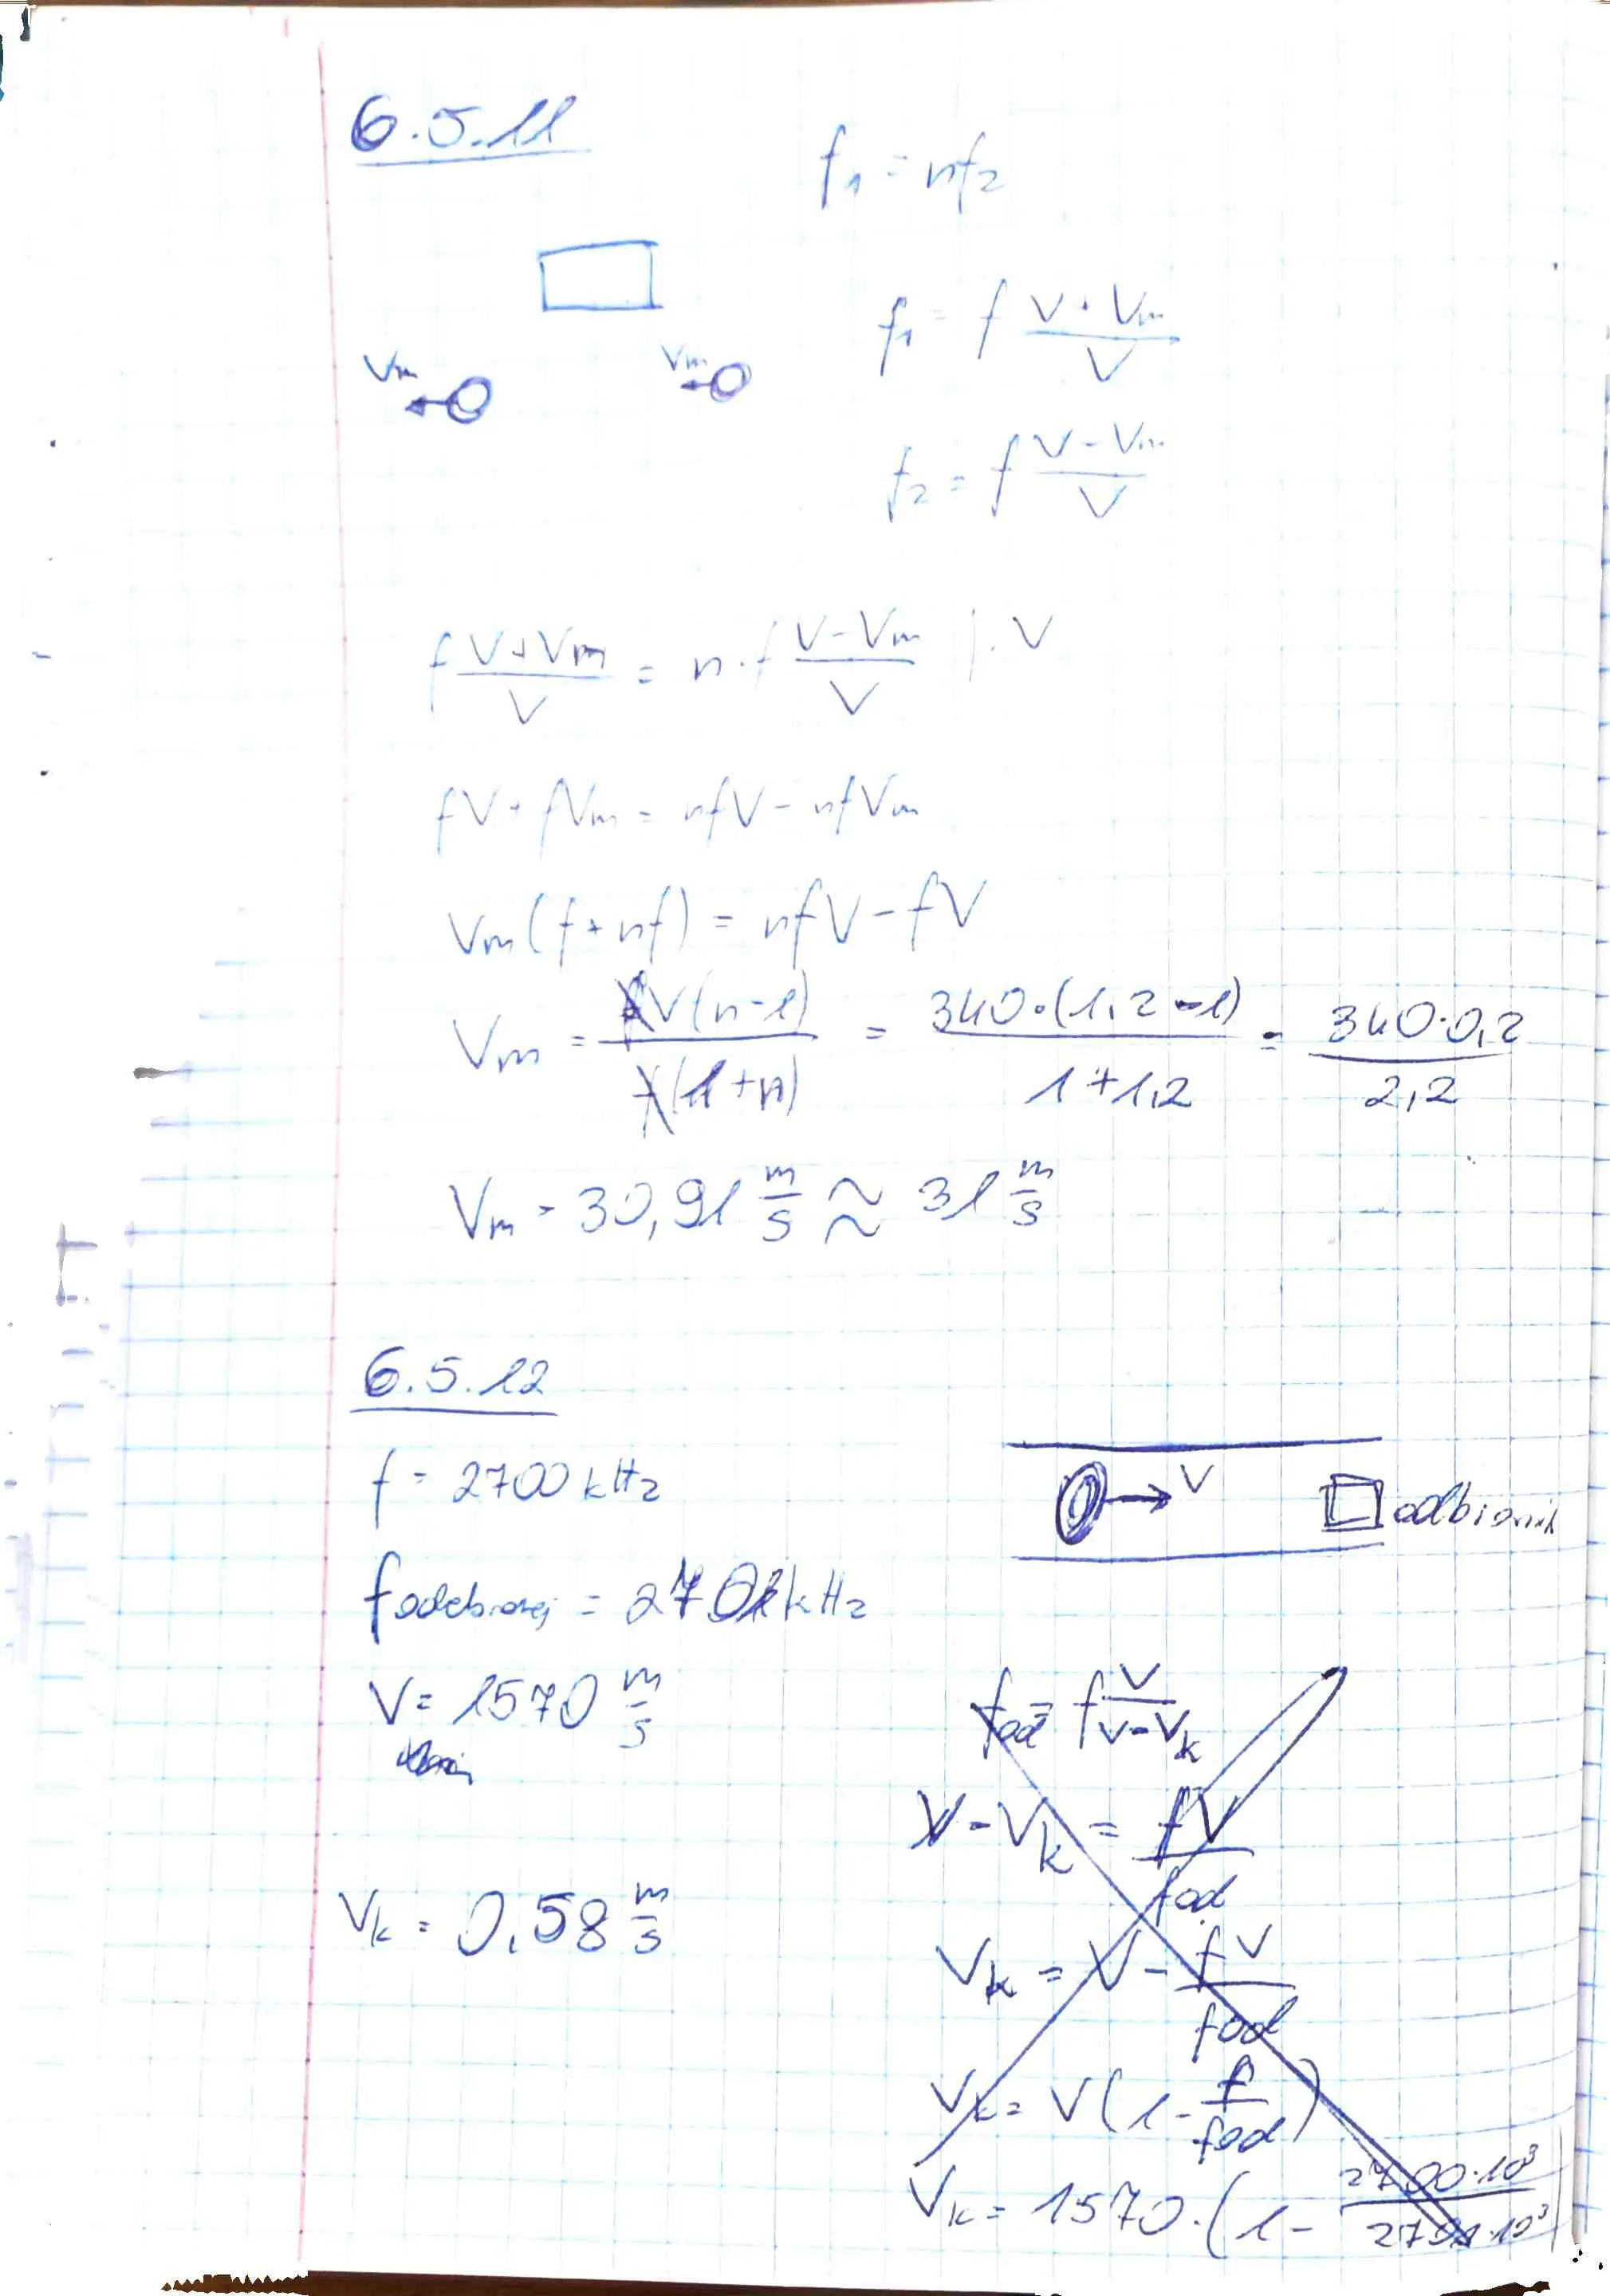 6.5.11
f₁ = nf₂
Vm
Vm
f₁ = f (V + Vm)/V
f₂ = f (V - Vm)/V
f (V+Vm)/V = n·f (V-Vm)/V |·V
fV + fVm = nfV - nfVm
Vm(f+nf) = nfV - fV
Vm = fV(n-1)/f(1+n) = 340·(1,2-1)/(1+1,2) = 340·0,2/2,2
Vm = 30,91 m/s ≈ 31 m/s
6.5.12
f = 2700 kHz
V
odbiornik
fodebranej = 2701 kHz
V = 1570 m/s
Vk = 0,58 m/s
fod = f V/(V-Vk)
V - Vk = fV/fod
Vk = V - fV/fod
Vk = V(1 - f/fod)
Vk = 1570·(1 - 2700·10³/2701·10³)